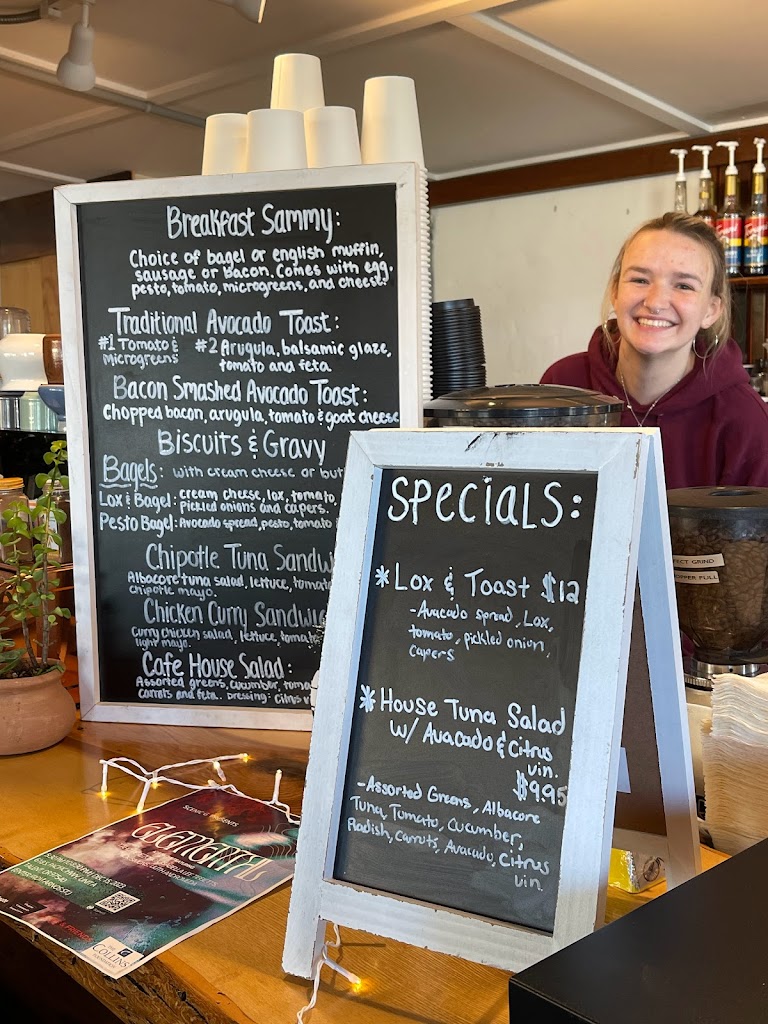 Breakfast Sammy:
Choice of bagel or english muffin,
sausage or bacon. Comes with egg,
pesto, tomato, microgreens, and cheese.
Traditional Avocado Toast:
#1 Tomato &
microgreens
#2 Arugula, balsamic glaze,
tomato and feta
Bacon Smashed Avocado Toast:
chopped bacon, arugula, tomato & goat cheese
Biscuits & Gravy
Bagels: with cream cheese or but
Lox & Bagel: cream cheese, lox, tomato,
pickled onions and capers.
Pesto Bagel: Avocado spread, pesto, tomato
Chipotle Tuna Sandw
Albacore tuna salad, lettuce, tomato
chipotle mayo.
Chicken Curry Sandwic
Curry chicken salad, lettuce, tomato
light mayo.
Cafe House Salad:
Assorted greens, cucumber, toma
carrots and feta. Dressing: citrus vi
Specials:
* Lox & Toast $12
- Avacado spread, Lox,
tomato, pickled onion,
capers
* House Tuna Salad
w/ Avacado & Citrus
vin.
$9.95
- Assorted Greens, Albacore
Tuna, Tomato, Cucumber,
Radish, Carrots, Avacado, Citrus
vin.
FECT GRIND
HOPPER FULL
Torani
THE
COLLINS